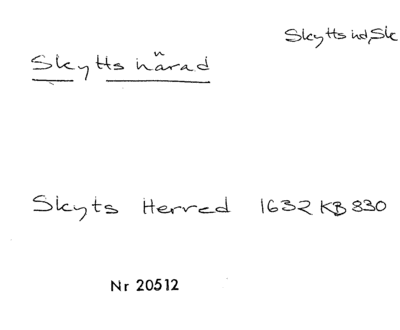 Skytts hd, Sk
Skytts härad
Skyts Herred 1632 KB 330
Nr 20512